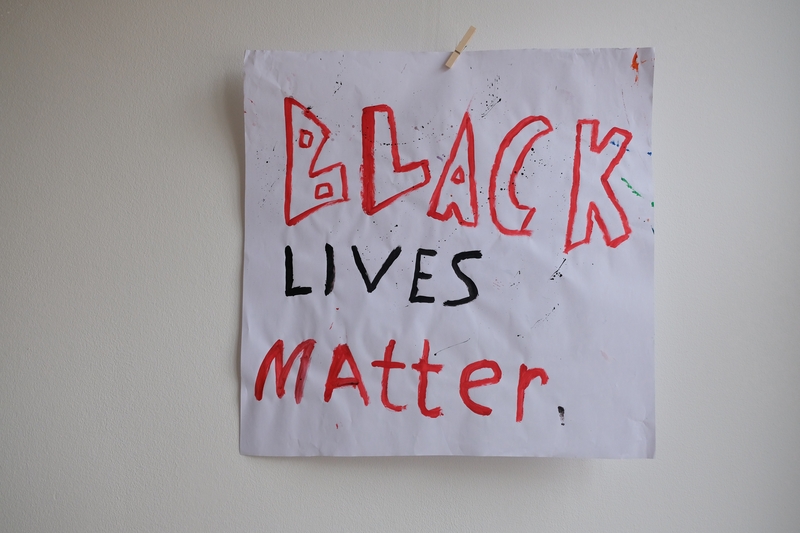 BLACK
LIVES
MAtter.